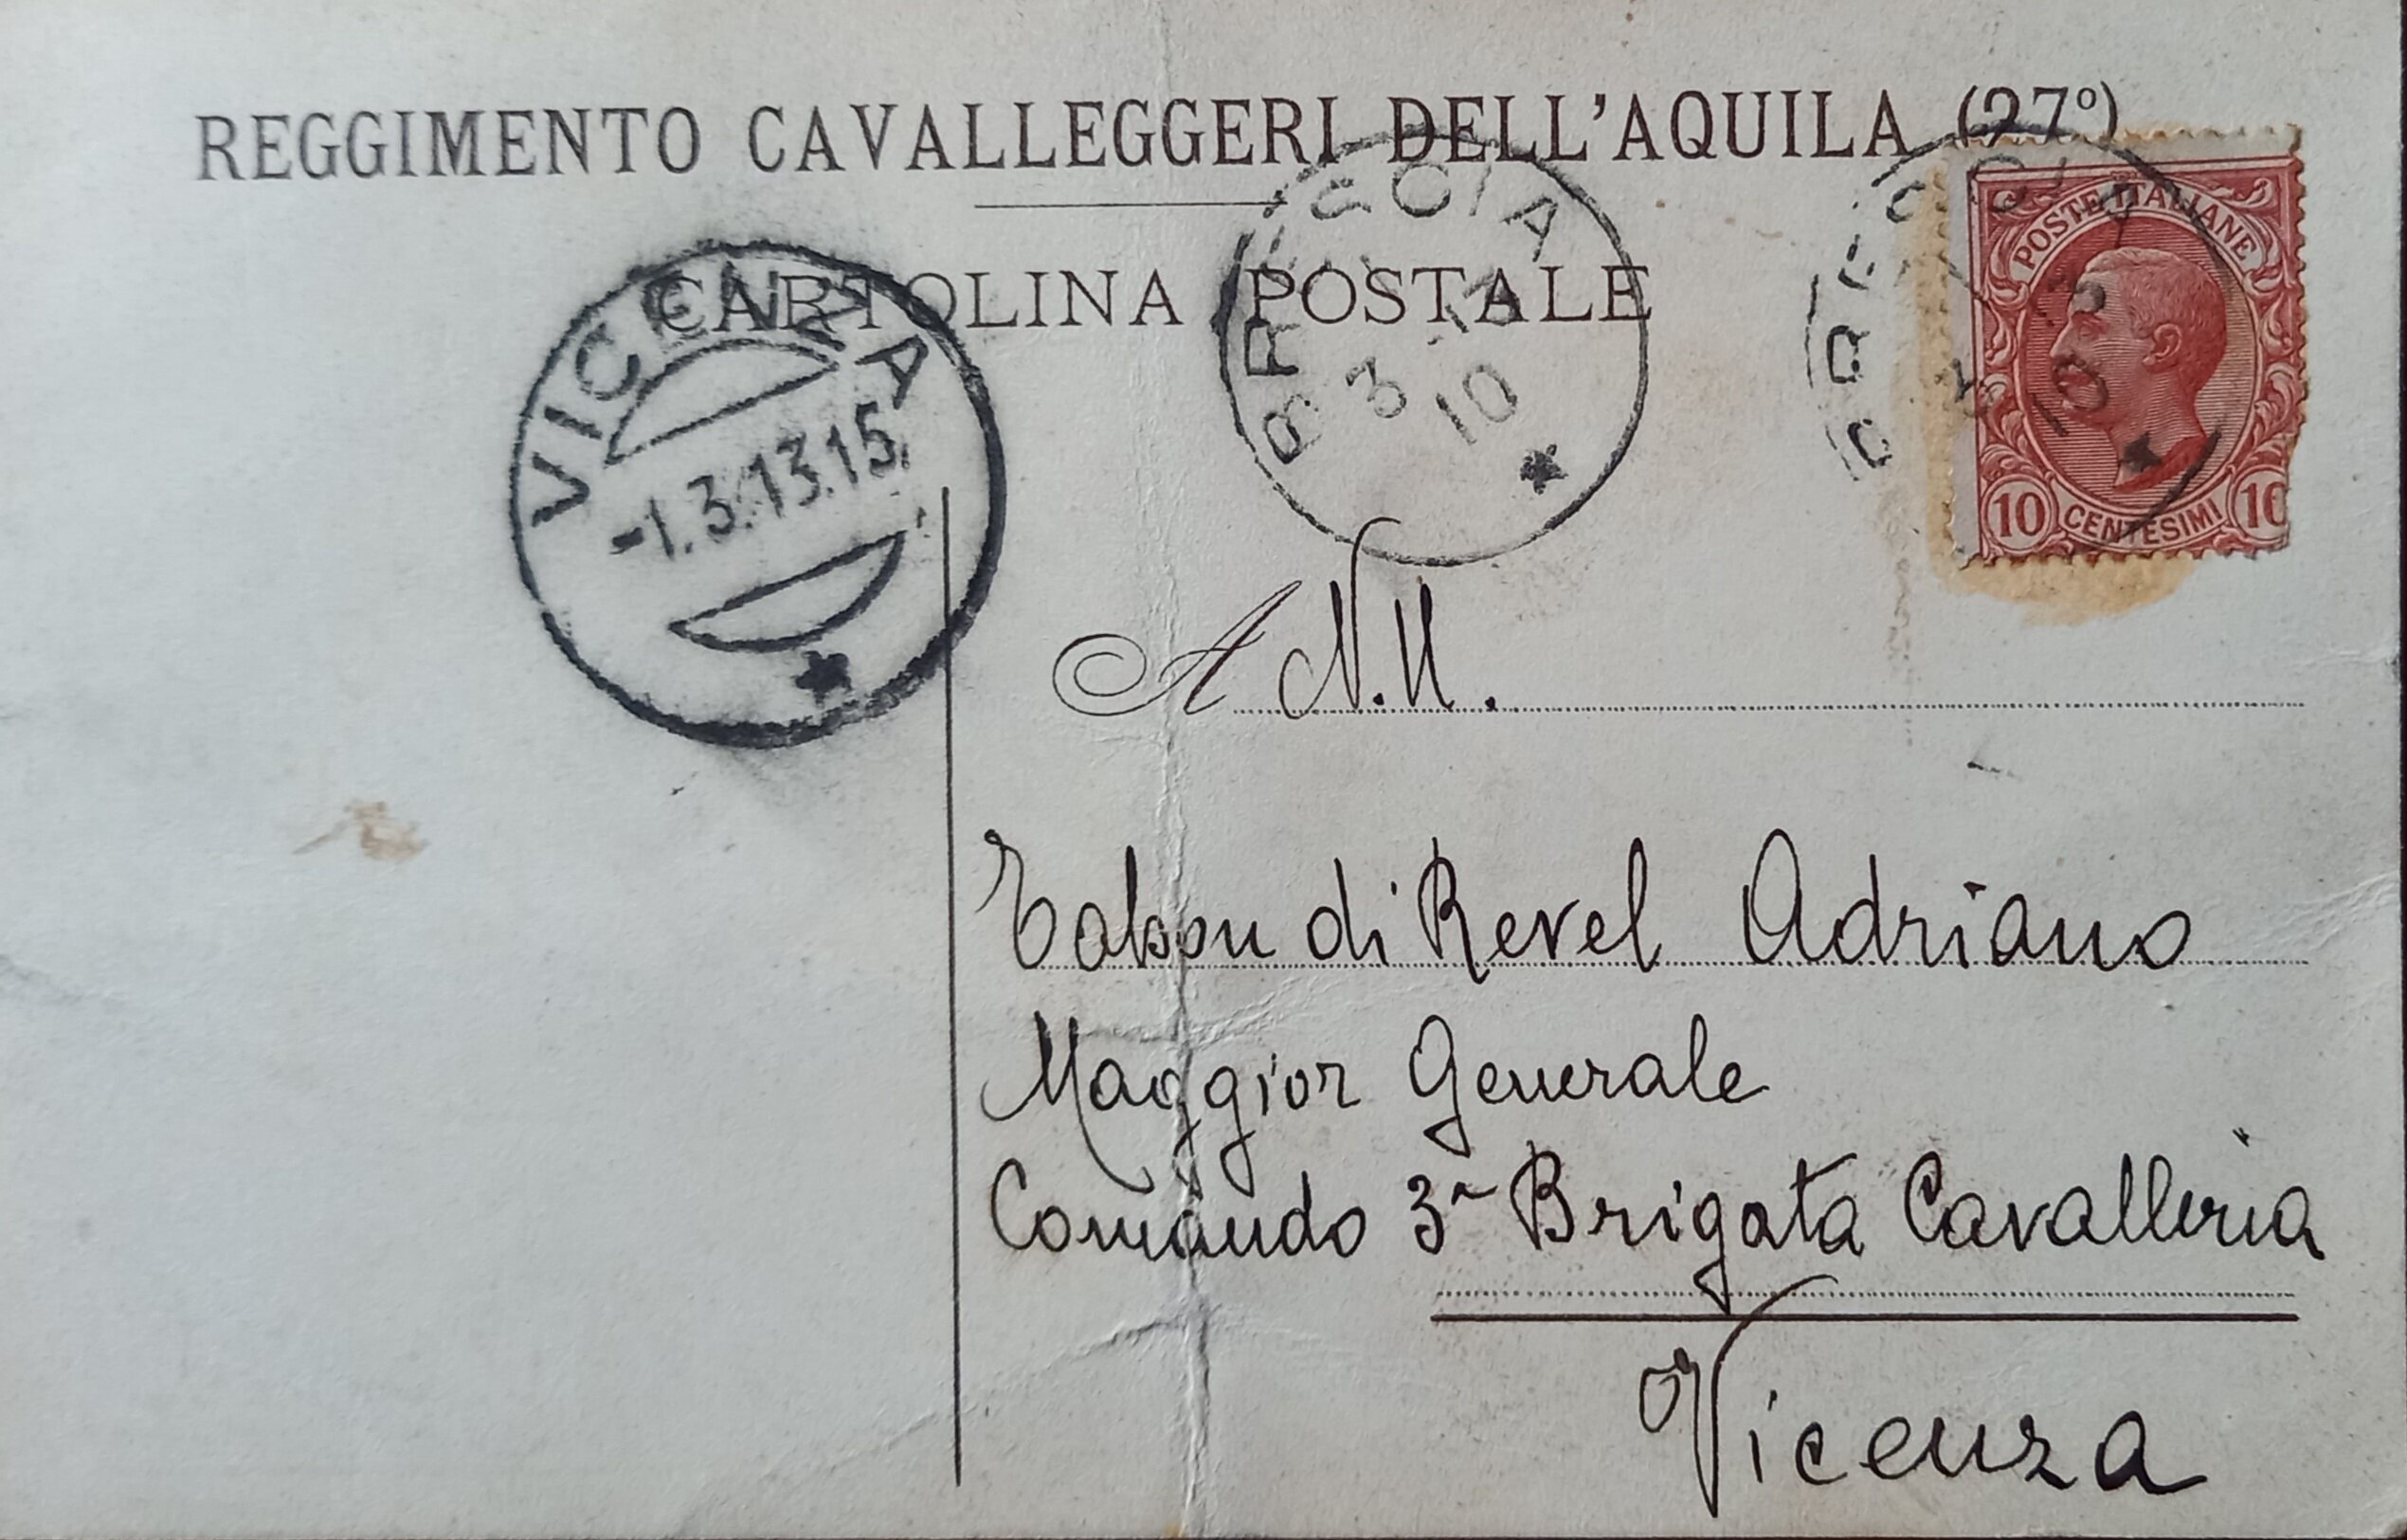 REGGIMENTO CAVALLEGGERI DELL'AQUILA (27º)
CARTOLINA POSTALE
VICENZA
-1.3.13.15.
BRESCIA
3 . 13
10
BRESCIA
3
13
10
POSTE ITALIANE
10 CENTESIMI 10
A N.U.
Tahon di Revel Adriano
Maggior Generale
Comando 3ª Brigata Cavalleria
Vicenza